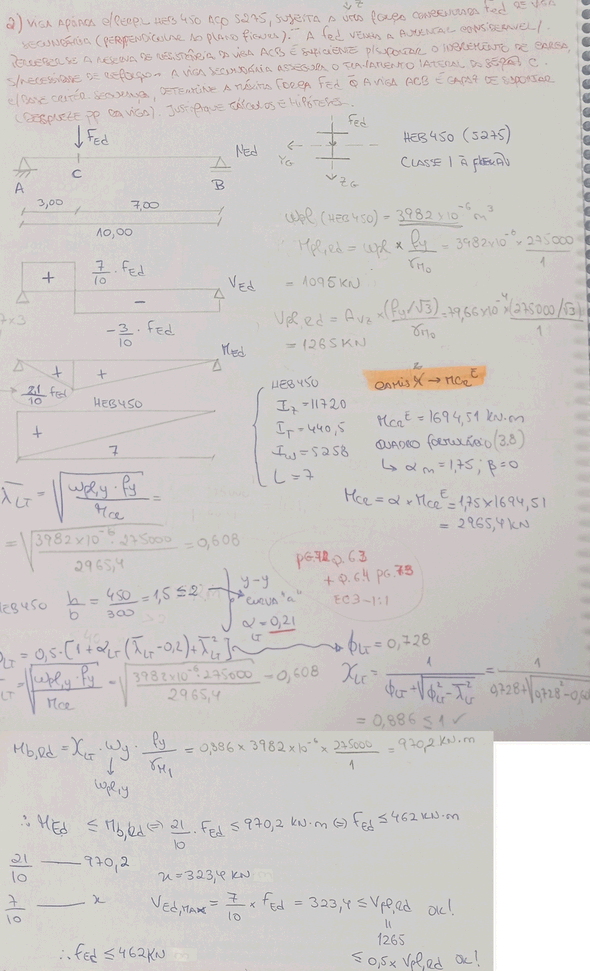 2) VIGA APOIADA C/PERFIL HEB 450 AÇO S275, SUJEITA A UMA FORÇA CONCENTRADA Fed DE VIGA
SECUNDÁRIA (PERPENDICULAR AO PLANO FIGURA). A Fed VERIA A AUMENTAR CONSIDERAVEL/.
A RESERVA DE RESISTÊNCIA DA VIGA ACB É SUFICIENTE P/SUPORTAR O INCREMENTO DE CARGA,
S/NECESSIDADE DE REFORÇO. A VIGA SECUNDÁRIA ASSEGURA O TRAVAMENTO LATERAL DA SECÇÃO C.
DETERMINE A MÁXIMA FORÇA Fed Q A VIGA ACB É CAPAZ DE SUPORTAR
(DESPREZE PP DA VIGA). JUSTIFIQUE CÁLCULOS E HIPÓTESES.
FEd
A
C
B
NEd
3,00
7,00
10,00
FEd
YG
ZG
HEB450 (S275)
CLASSE 1 À FLEXÃO
Wpl (HEB450) = 3982×10⁻⁶ m³
Mpl,Rd = Wpl × fy/γM0 = 3982×10⁻⁶ × 275000/1
= 1095 KN
Vpl,Rd = Avz × (fy/√3)/γM0 = 79,66×10⁻⁴ × (275000/√3)/1
= 1265 KN
+ 7/10 . FEd
VEd
−
-3/10 . FEd
MEd
+ +
21/10 FEd
HEB450
+
7
HEB450
Iz = 11720
IT = 440,5
Iw = 5258
L = 7
→ Mcr^E
Mcr^E = 1694,51 KN.m
QUADRO FORMULÁRIO (3.8)
↳ αm = 1,75 ; β = 0
Mcr = α × Mcr^E = 1,75 × 1694,51
= 2965,4 KN
λ̄LT = √(Wpl,y . fy / Mcr) =
= √(3982×10⁻⁶ . 275000 / 2965,4) = 0,608
HEB450 h/b = 450/300 = 1,5 ≤ 2
y-y
CURVA "a"
αLT = 0,21
PG.72 Q.63
+ Q.64 PG.73
EC3-1:1
ΦLT = 0,5 . [1 + αLT (λ̄LT - 0,2) + λ̄LT²] → ΦLT = 0,728
√(Wpl,y . fy / Mcr) = √(3982×10⁻⁶ . 275000 / 2965,4) = 0,608
χLT = 1/(ΦLT + √(ΦLT² - λ̄LT²)) = 1/(0,728 + √(0,728² - 0,60
= 0,886 ≤ 1 ✓
Mb,Rd = χLT . Wy . fy/γM1 = 0,886 × 3982×10⁻⁶ × 275000/1 = 970,2 KN.m
↓
Wpl,y
∴ MEd ≤ Mb,Rd ⇔ 21/10 . FEd ≤ 970,2 KN.m ⇔ FEd ≤ 462 KN.m
21/10 —— 970,2
x = 323,4 KN
7/10 —— x
VEd,MAX = 7/10 × FEd = 323,4 ≤ Vpl,Rd OK!
=
1265
∴ FEd ≤ 462 KN
≤ 0,5 × Vpl,Rd OK!